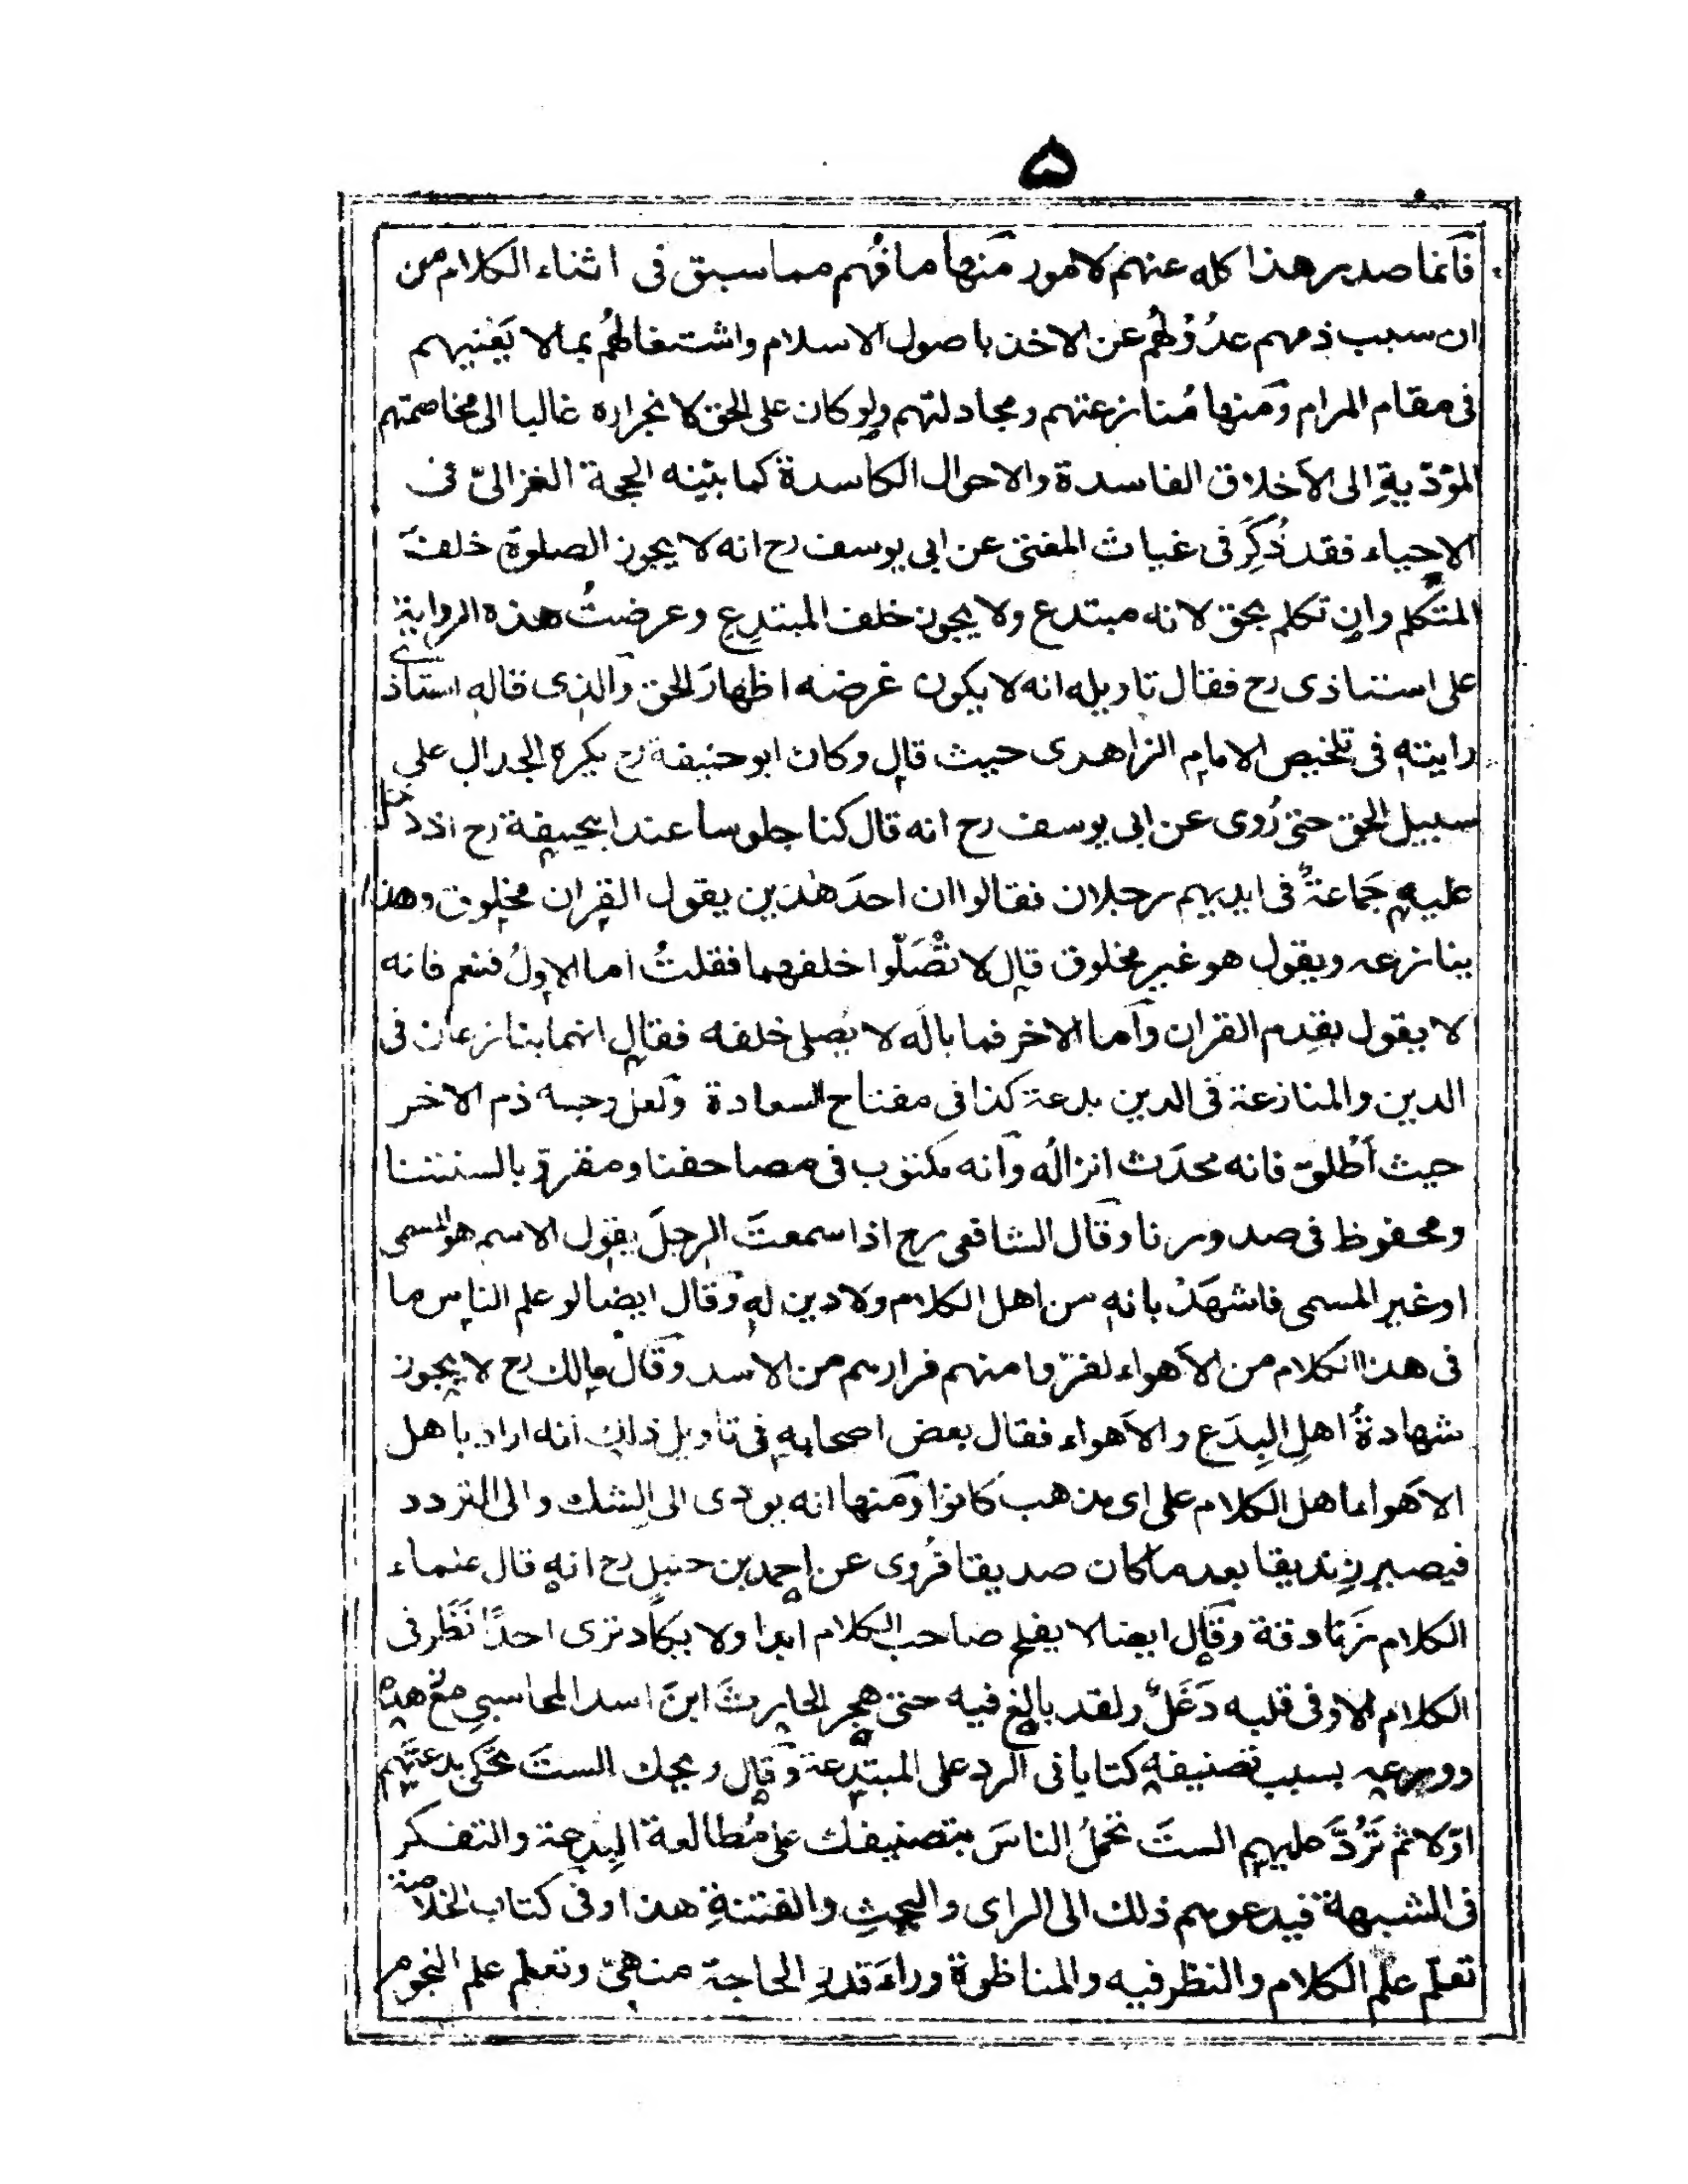 ۵
فانما صدر هذا كله عنهم لامور منها ما فهم مما سبق فى اثناء الكلام من
ان سبب ذمهم عدُوْلُهُم عن الاخذ باصول الاسلام واشتغالهُم بما لا يَعْنيهم
فى مقام المرام ومنها مُنازعتهم ومجادلتهم ولو كان على الحق لانجراره غالبا الى مخاصمتهم
المؤدّيةِ الى الاخلاق الفاسدة والاحوال الكاسدة كما بيّنه الحجة الغزالىّ فى
الاحياء فقد ذُكِرَ فى غياث المفتى عن ابى يوسف رح انه لا يجوز الصلوة خلف
المتكلم وان تكلم بحق لانه مبتدع ولا يجوز خلف المبتدِعِ وعرضتُ هذه الرواية
على استاذى رح فقال تاويله انه لا يكون غرضه اظهارَ الحق والذى قاله استاذى
رايته فى تلخيص الامام الزاهدى حيث قال وكان ابو حنيفة رح يكره الجدال على
سبيل الحق حتى رُوى عن ابى يوسف رح انه قال كنا جلوسا عند ابيحنيفة رح اذ دخل
عليه جَماعةٌ فى ايديهم رجلان فقالوا ان احدَ هٰذين يقول القران مخلوق وهذا
ينازعه ويقول هو غير مخلوق قال لا تُصَلّوا خلفهما فقلتُ اما الاولُ فنعم فانه
لا يقول بقِدم القران واما الاخر فما بالُه لا يُصلى خلفه فقال انهما ينازعان فى
الدين والمنازعة فى الدين بدعة كذا فى مفتاح السعادة ولعل وجه ذم الاخر
حيث اَطلق فانه محدَث انزالُه وانه مكتوب فى مصاحفنا ومقرو بالسنتنا
ومحفوظ فى صدورنا وقال الشافعى رح اذا سمعتَ الرجلَ يقول الاسم هو المسمى
او غير المسمى فاشهَدْ بانه من اهل الكلام ولا دين له وقال ايضا لو علم الناس ما
فى هذا الكلام من الاهواء لفرّوا منهم فرارهم من الاسد وقال مالك رح لا يجوز
شهادةُ اهلِ البِدَع والاهواء فقال بعض اصحابه فى تاويل ذلك انه اراد باهل
الاهواء اهل الكلام على اى مذهب كانوا ومنها انه يودى الى الشك والى التردد
فيصير زِنديقا بعد ما كان صديقا فرُوى عن احمد بن حنبل رح انه قال علماء
الكلام زَنادقة وقال ايضا لا يفلح صاحب الكلام ابدا ولا يكاد ترى احدًا نَظَر فى
الكلام الا وفى قلبه دَغَلٌ ولقد بالغ فيه حتى هجر الحارثَ ابنَ اسد المحاسبى مع زهده
وورعه بسبب تصنيفه كتابا فى الرد على المبتدعة وقال ويحك الستَ تحكى بدعتهم
اوّلا ثم تَرُدَّ عليهم الستَ تحملُ الناسَ بتصنيفك على مُطالعة البِدعة والتفكر
فى الشبهة فيدعوهم ذلك الى الراى والبحثِ والفتنةِ هذا وفى كتاب الخلاصة
تعلّم علم الكلام والنظر فيه والمناظرة وراءَ قدر الحاجة منهىّ وتعلم علم النجوم